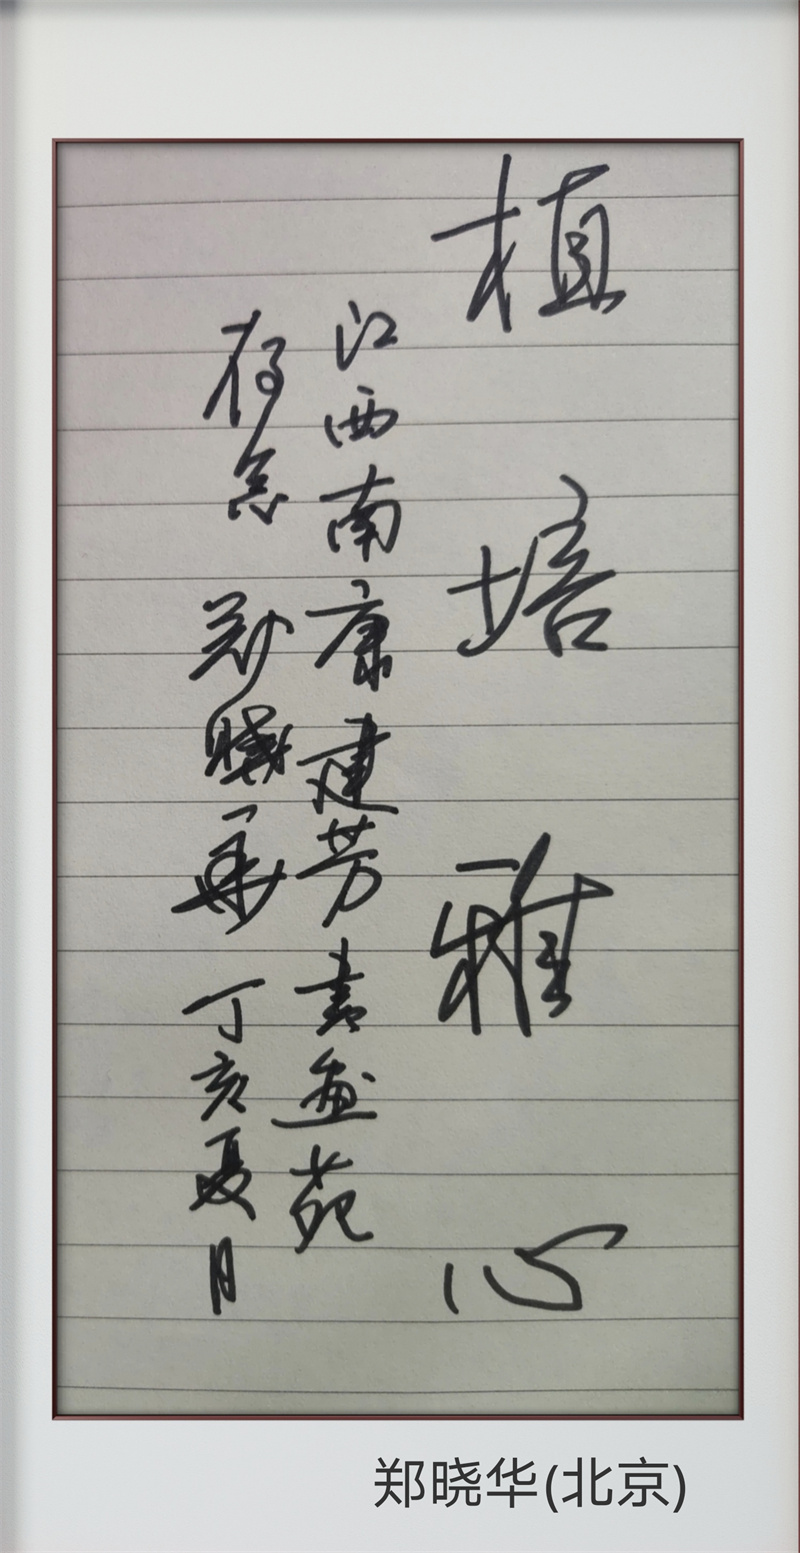 植培雅心
江西南康建芳书画苑
存念 郑晓华 丁亥夏月
郑晓华(北京)